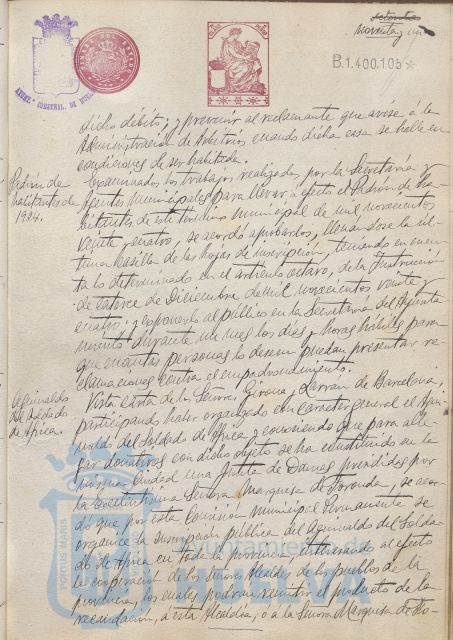 setenta
noventa y un
B.1.400.105
AYUNT. CONSTNAL. DE HUELVA
dicho débito; y prevenir al reclamante que avise á la
Administración de Arbitrios cuando dicha casa se halle en
condiciones de ser habitada.
Padrón de
habitantes de
1924.
Examinados los trabajos realizados por la Secretaría y
Agentes municipales para llevar á efecto el Padrón de ha-
bitantes de este término municipal de mil novecientos
veinte y cuatro, se acordó aprobarlos, llenandose la úl-
tima casilla de las hojas de inscripción, teniendo en cuen-
ta lo determinado en el artículo octavo, de la Instrucción
de catorce de Diciembre de mil novecientos veinte y
cuatro; y exponerlo al público en la Secretaría del Ayunta-
miento durante un mes los dias y horas hábiles para
que cuantas personas lo deseen puedan presentar re-
clamaciones contra el empadronamiento.
Aguinaldo
del Soldado
de Africa.
Vista carta de los Señores Girona y Larran de Barcelona,
participando haber organizado con caracter general el Agui-
naldo del Soldado de Africa y conociendo que para alle-
gar donativos con dicho objeto se ha constituido en la
misma Ciudad una Junta de Damas presididas por
la Excelentísima Señora Marquesa de Foronda, se acor-
dó que por esta Comisión Municipal Permanente se
organice la suscripción pública del Aguinaldo del Solda-
do de Africa en toda la provincia, interesando al efecto
la cooperación de los señores Alcaldes de los pueblos de la
provincia, los cuales podrán remitir el producto de la
recaudación, á esta Alcaldía, ó á la Señora Marquesa de Fo-
PORTUS MARIS
HUELVA